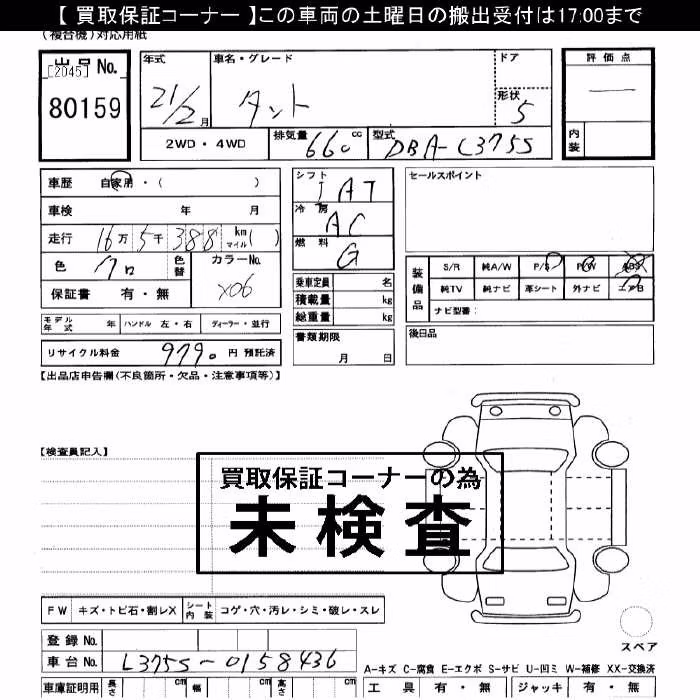 【 買取保証コーナー 】この車両の土曜日の搬出受付は17:00まで
(複合機)対応用紙
出品No. [2045]
80159
年式 21/2月
車名・グレード タント
ドア 形状 5
評価点 —
内装
2WD・4WD
排気量 660 cc
型式 DBA-L375S
車歴 自家用・( )
車検 年 月
走行 16万5千388 km マイル( )
色 クロ 色替
カラーNo. X06
保証書 有・無
シフト IAT
冷房 AC
燃料 G
乗車定員 名
積載量 kg
総重量 kg
セールスポイント
装備品 S/R 純A/W P/S P/W ABS
純TV 純ナビ 革シート 外ナビ エアB
ナビ型番:
モデル年式 年 ハンドル 左・右 ディーラー・並行
書類期限 月 日
後日品
リサイクル料金 9790 円 預託済
【出品店申告欄(不良箇所・欠品・注意事項等)】
【検査員記入】
買取保証コーナーの為
未検査
FW キズ・トビ石・割レX シート内装 コゲ・穴・汚レ・シミ・破レ・スレ
スペア
登録No.
車台No. L375S-0158436
A-キズ C-腐食 E-エクボ S-サビ U-凹ミ W-補修 XX-交換済
車庫証明用 長さ cm 幅 cm 高さ cm
工具 有・無 ジャッキ 有・無